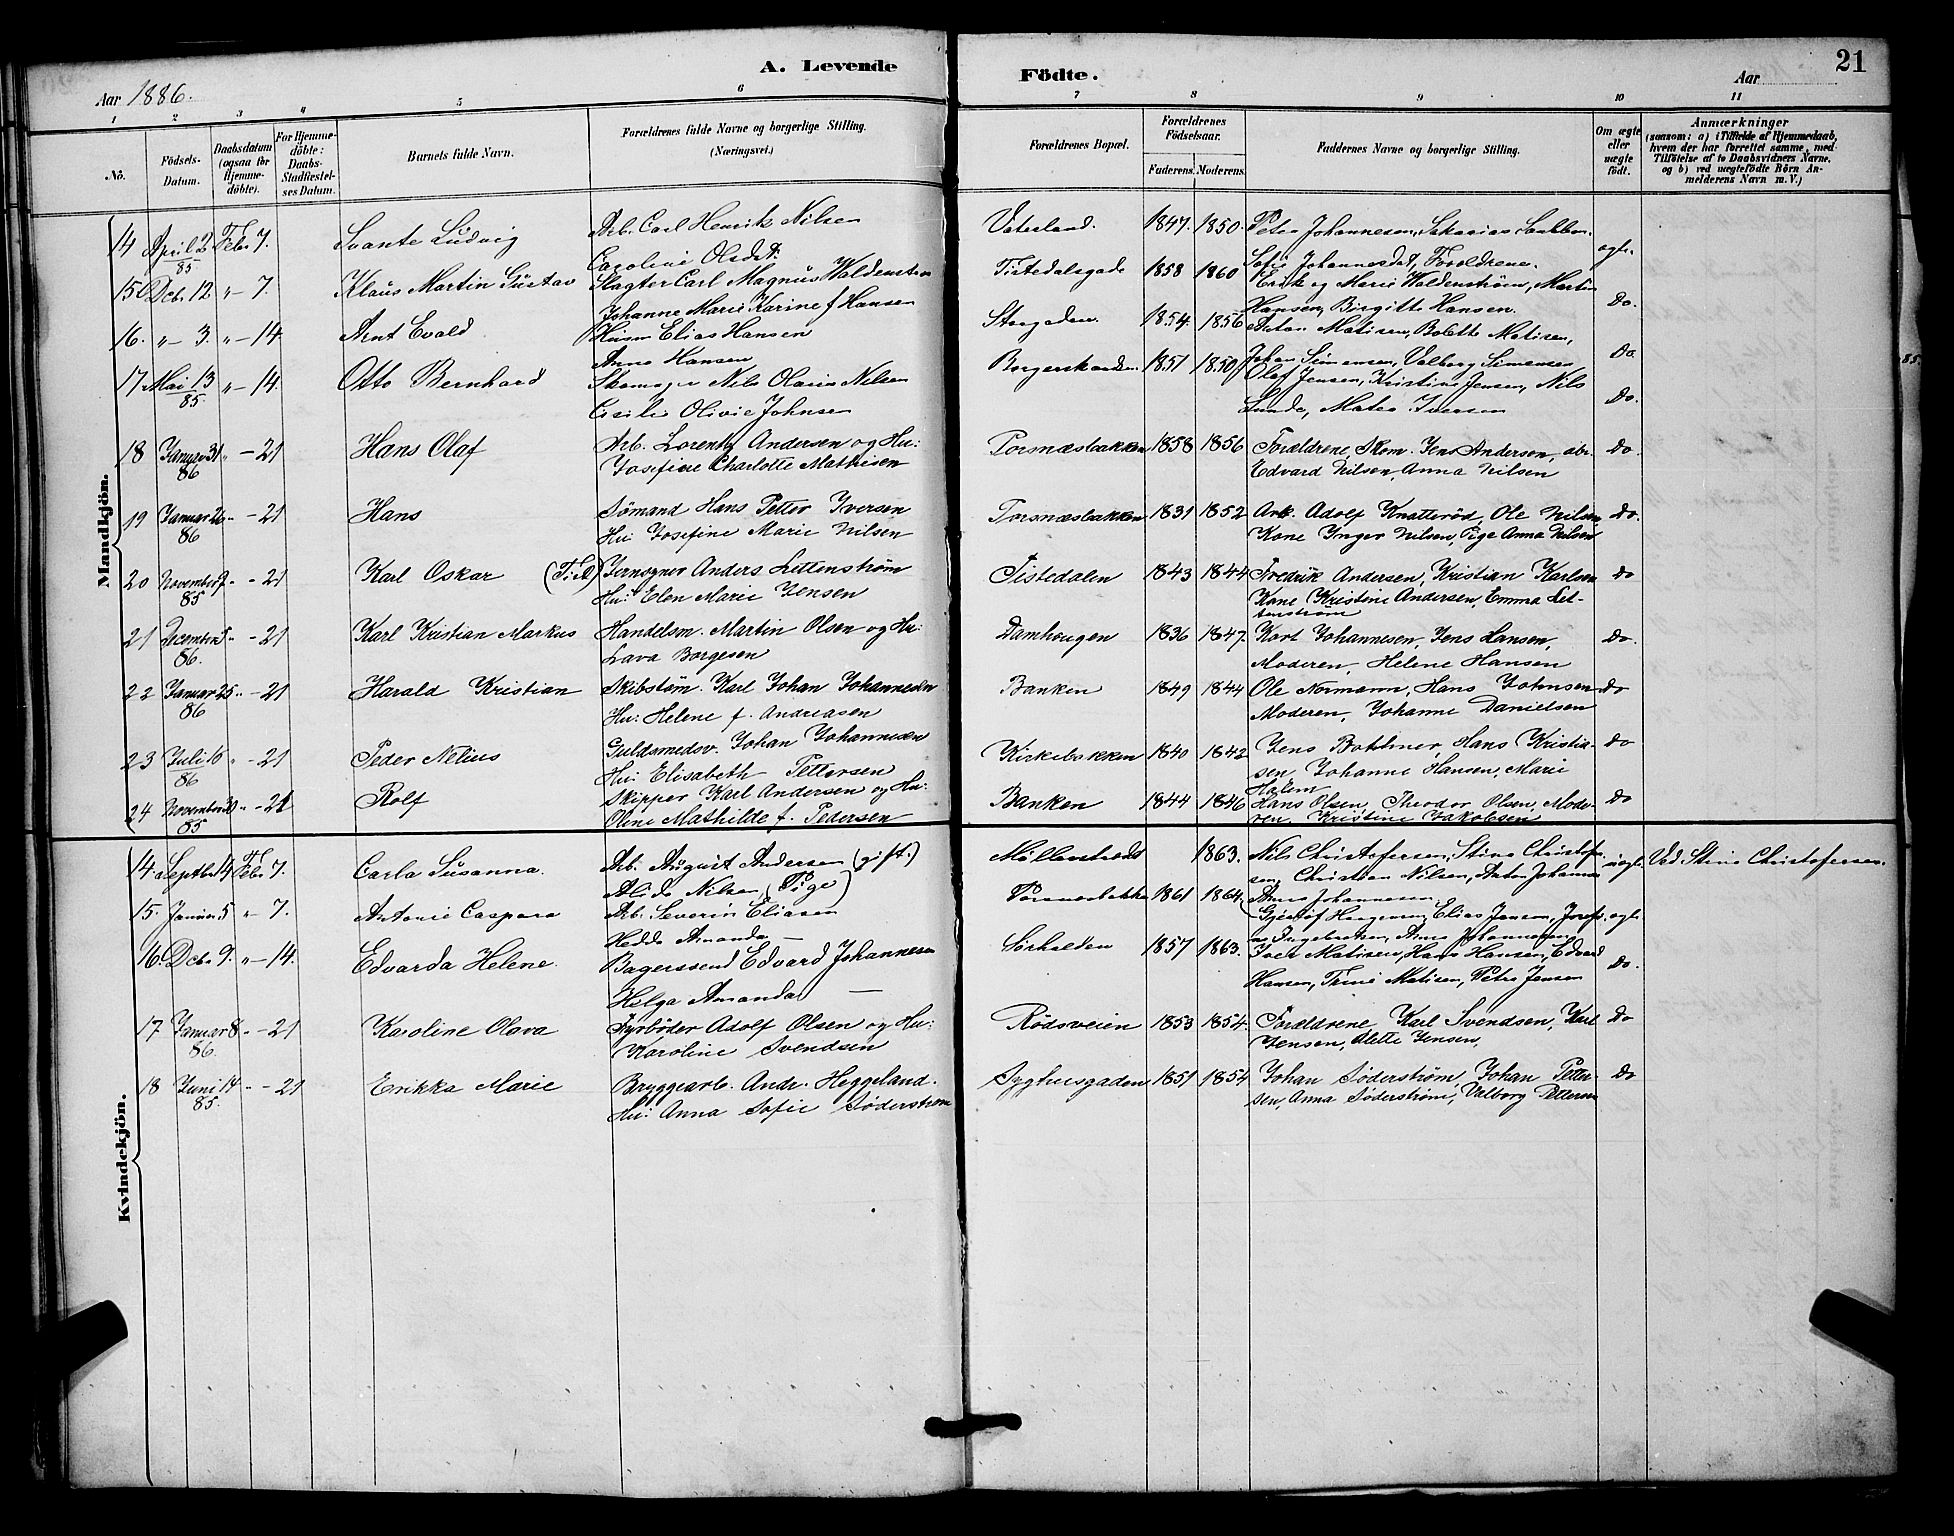 A. Levende
Födte.
21
Aar 1886.
Aar
1 2 3 4 5 6 7 8 9 10 11
No.
Födsels-Datum.
Daabsdatum (ogsaa for Hjemme-döbte).
For Hjemme-döbte: Daabs-Stadfæstel-ses Datum.
Barnets fulde Navn.
Forældrenes fulde Navne og borgerlige Stilling. (Næringsvei.)
Forældrenes Bopæl.
Forældrenes Födselsaar.
Faderens. Moderens.
Faddernes Navne og borgerlige Stilling.
Om ægte eller uægte födt.
Anmærkninger
(saasom: a) i Tilfælde af Hjemmedaab, hvem der har forrettet samme, med Tilföielse af to Daabsvidners Navne, og b) ved uægtefödte Börn An-melderens Navn m.V.)
Mandkjön.
14 April 2 85. Febr 7. Svante Ludvig Arb. Carl Henrik Nilsen Vaterland. 1847. 1850. Peter Johannesen, Sakarias
Caroline Olsdt. Sofie Johannesdat, Forældrene. ægte.
15 Dcb. 12 " - 7. Klaus Martin Gustav Slagter Carl Magnus Waldenström Tistedalsgade 1858 1860 Erik og Marie Waldenström, Martin
Johanne Marie Karine f Hansen Hansen, Birgitte Hansen. Do.
16. " - 3. " - 14 Arnt Evald Husm Elias Hansen Storgaden. 1854. 1856 Anton Matisen, Bolette Matisen,
Anne Hansen Johan Simensen, Valborg Simensen Do.
17 Mai 13 85. " - 14. Otto Bernhard Skomager Nils Olavis Nilsen 1851 1850 Olaf Jensen, Kristine Jensen, Nils
Cicilie Olivie Johnsen Lunde, Mates Iversen Do.
18 Januar 31 86 " - 21 Hans Olaf Arb. Lorentz Andersen og Hu: Torsnæsbakken 1858 1856 Forældrene, Skom. Jens Andersen, abr. Do.
Josefine Charlotte Mathisen Edvard Nilsen, Anna Nilsen
19 Januar 26 86 " - 21 Hans Sömand Hans Petter Iversen Torsnæsbakken 1831 1852 Arb. Adolf Knatteröd, Ole Nilsen Do.
Hu: Josefine Marie Nilsen Kone Inger Nilsen, Pige Anna Nilsen
20 November 2 85 " - 21 Karl Oskar (Tisd) Anders Lettenström Tistedalen 1843 1844 Fredrik Andersen, Kristian Karlsen Do
Hu: Elen Marie Jensen Kone Kristine Andersen, Emma Let-
tenström
21 December 5 86. " - 21 Karl Kristian Markus Handelsm. Martin Olsen og Hu: Damhougen 1836 1847. Kort Johannesen, Jens Hansen, Do.
Lava Borgesen Moderen, Helene Hansen
22 Januar 25 86 " - 21 Harald Kristian Skibstöm. Karl Johan Johannesen Banken 1849 1844 Ole Normann, Hans Johnsen Do
Hu: Helene f. Andreasen Moderen, Johanne Danielsen
23 Juli 16 86 " - 21 Peder Nelius Guldsmedsv. Johan Johannesen Kirkebakken 1840 1842 Jens Bothner, Hans Kristian- Do
Hu: Elisabeth Pettersen sen, Johanne Hansen, Marie
Holem
24 November 30 85 " - 21 Rolf Skipper Karl Andersen og Hu: Banken 1844 1846 Hans Olsen, Theodor Olsen, Mode- Do
Oline Mathilde f. Pedersen ren, Kristine Jakobsen
Kvindekjön.
14 Septbr 14 Febr 7. Carla Susanna. Arb. August Andersen (gift.) 1863. Nils Christofersen, Stine Christofer- uægte. Ved Stine Christofersen.
Alide Nilsen (Pige) sen, Christian Nilsen, Anton Johannes
15. Januar 5 " - 7. Antonie Caspara Arb. Severin Eliasen Torsnesbakke 1861 1864. Anne Johannesen
Hedda Amanda — Gjestöf Haagensen, Elias Jensen, Josefi- ægte.
ne Ingebretsen, Anne Johannesen
16. Dcbr 9. " - 14. Edvarda Helene. Bagerssend Edvard Johannesen Sörhalden 1857 1863. Iver Matisen, Hans Hansen, Edvard
Helga Amanda — Hansen, Trine Matisen, Petra Jensen Do.
17 Januar 8 86. " - 21 Karoline Olava Fyrböder Adolf Olsen og Hu: Rödsveien 1853 1854. Forældrene, Karl Svendsen, Karl Do
Karoline Svendsen Jensen, Mette Jensen,
18 Juni 14 85. " - 21 Erikka Marie Bryggearb. Andr. Heggeland. Syghusgaden 1851 1854 Johan Söderström, Johan Petter- Do
Hu: Anna Sofie Söderström sen, Anna Söderström, Valborg Pettersen